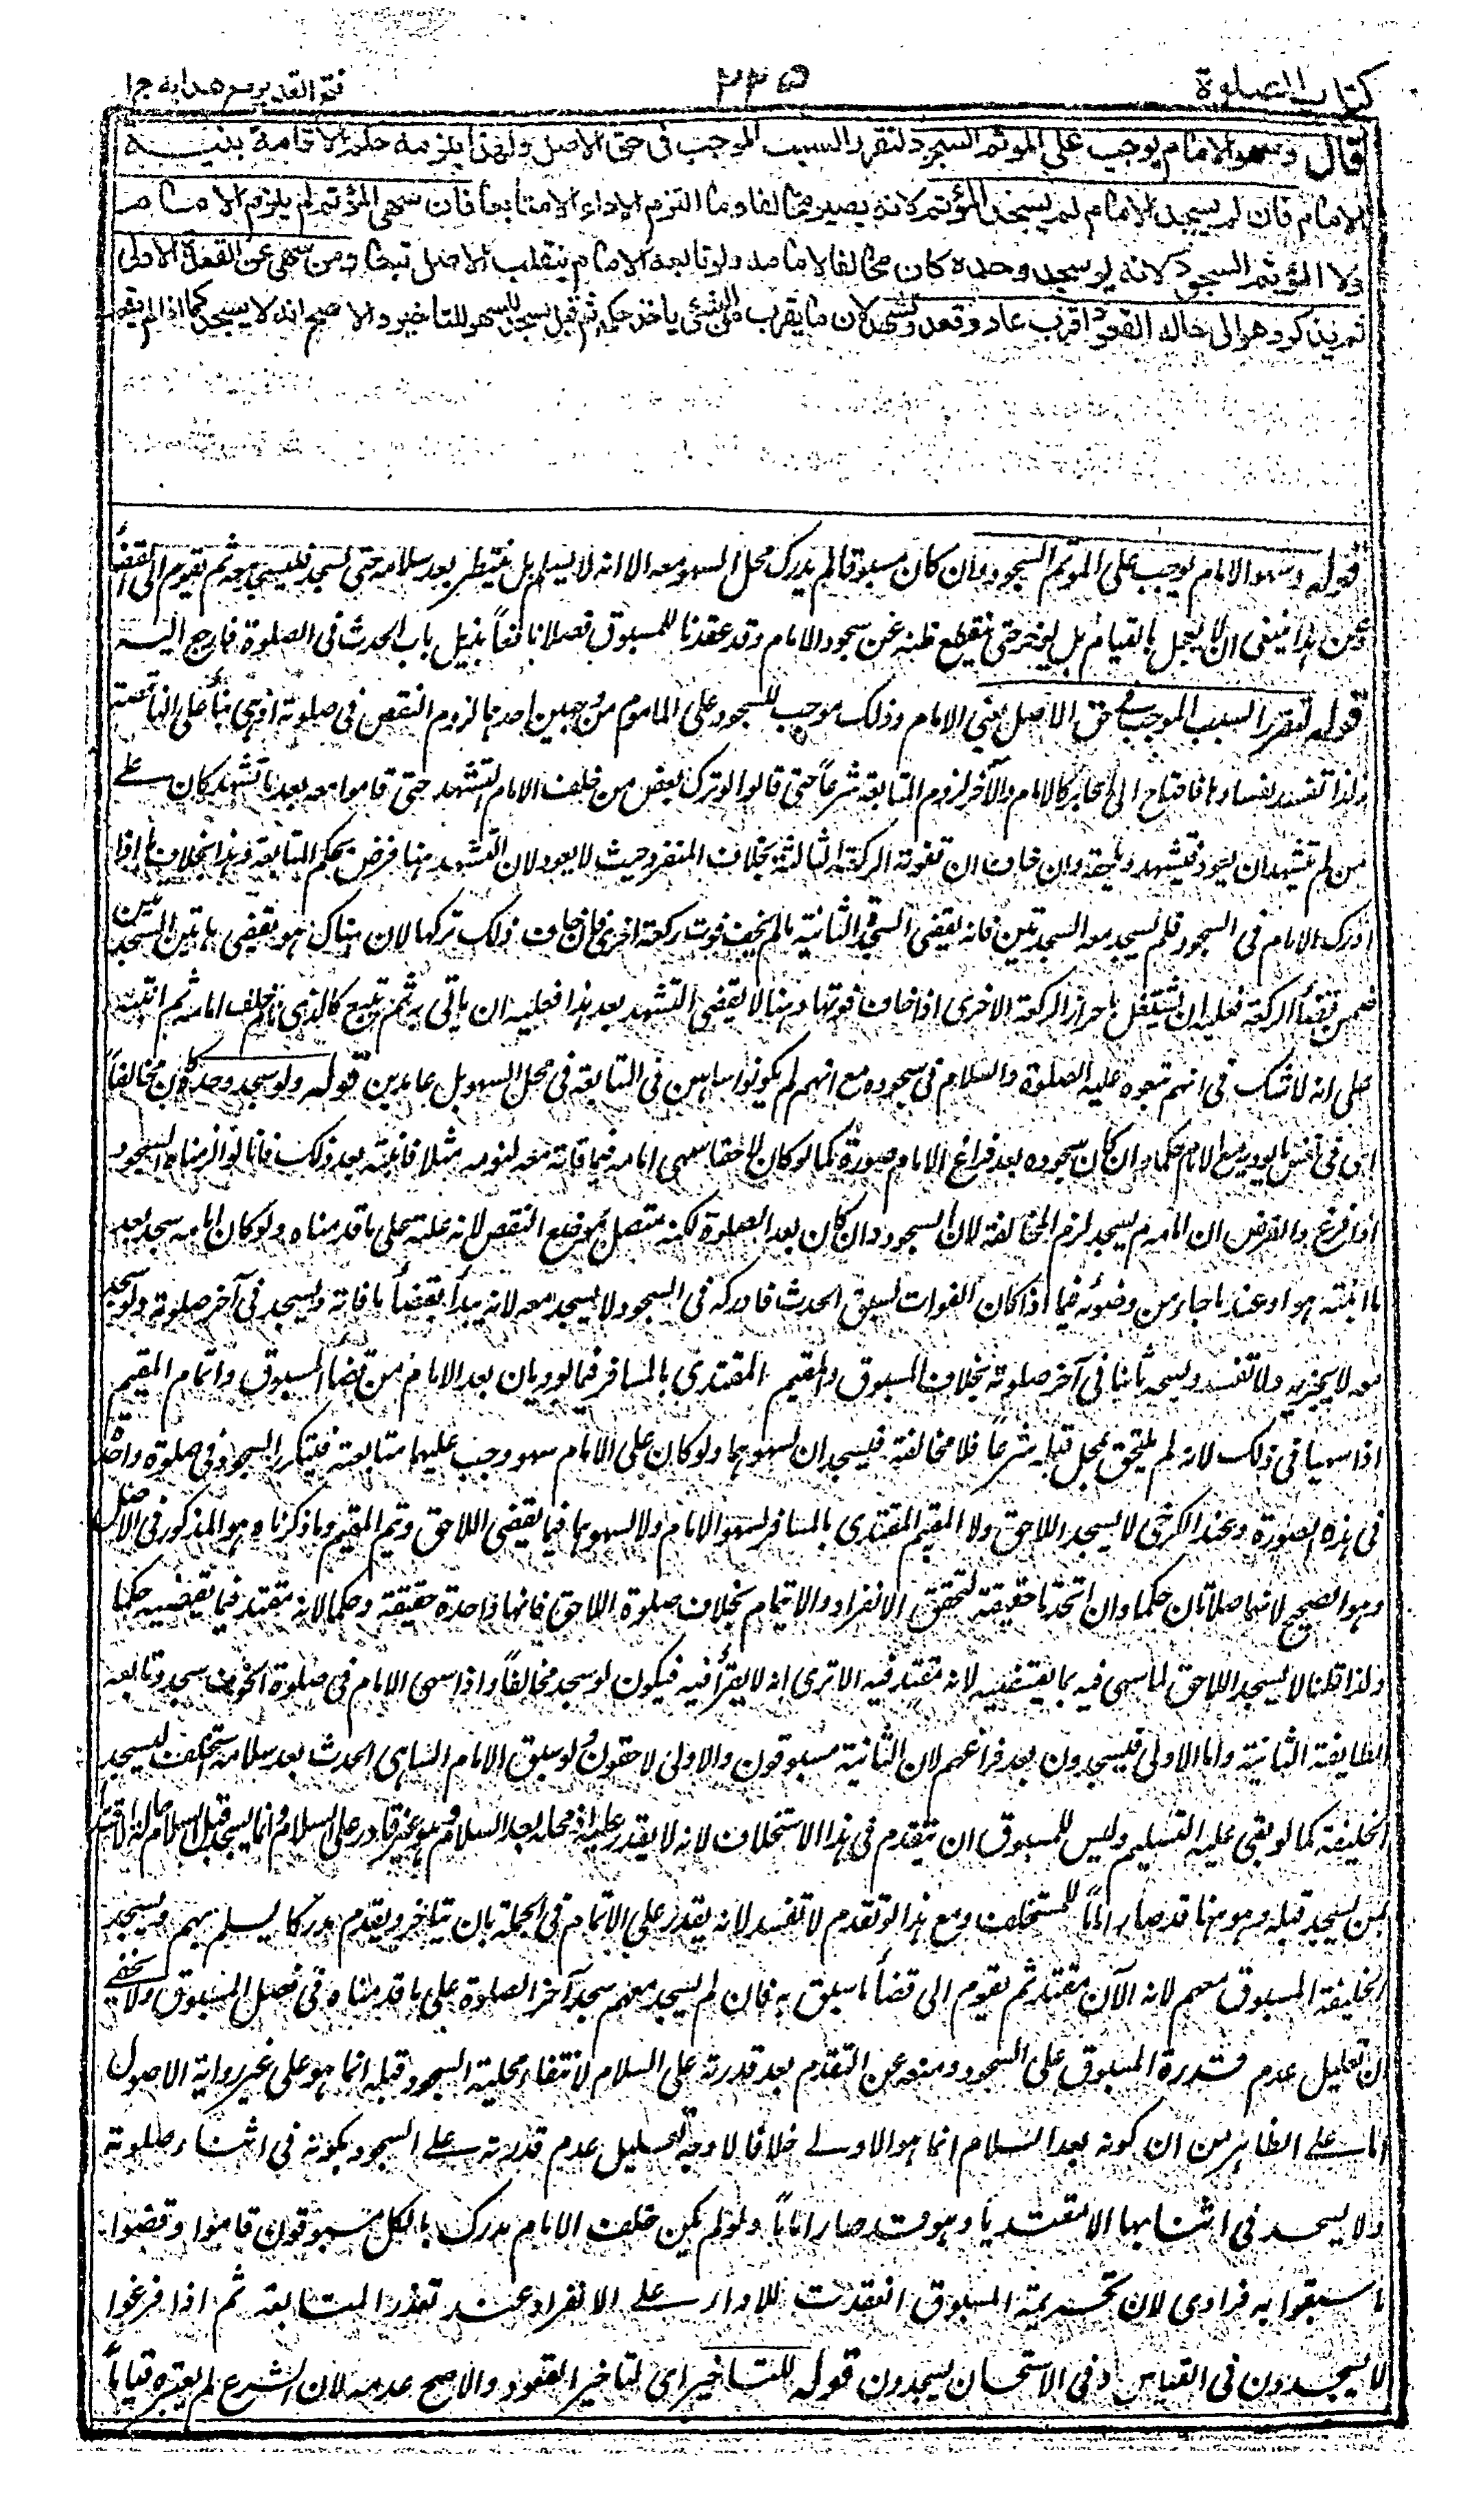 كتاب الصلوة ٢٣٥ فتح القدير مع هدايه ج ا
قال وسهو الامام يوجب على المؤتم السجود لتقرر السبب الموجب فى حق الاصل ولهذا يلزمه حكم الاقامة بنيـــة
الامام فان لم يسجد الامام لم يسجد المؤتم لانه يصير مخالفا وما التزم الاداء الا متابعا فان سهى المؤتم لم يلزم الامام
ولا المؤتم السجود لانه لو سجد وحده كان مخالفا لامامه ولو تابعه الامام ينقلب الاصل تبعا ومن سهى عن القعدة الاولى
ثم يذكر وهو الى حالة القعود اقرب عاد وقعد وتشهد لان ما يقرب من الشئ ياخذ حكمه ثم قيل يسجد للسهو للتاخير والاصح انه لا يسجد كما اذا لم يقم
قوله وسهو الامام يوجب على الموتم السجود وان كان مسبوقا لم يدرك محل السهو معه الا انه لا يسلم بل ينتظر بعد سلامه حتى يسجد فيسجد معه ثم يقوم الى القضأ
وعن هذا ينبغى ان لا يعجل بالقيام بل يوخر حتى ينقطع ظنه عن سجود الامام وقد عقدنا للمسبوق فصلا نافعاً بذيل باب الحدث فى الصلوة فارجع اليه
قوله لتقرر السبب الموجب فى حق الاصل يعنى الامام وذلك موجب للسجود على الماموم من وجهين احدهما لزوم النقص فى صلوته اذ هى بناء على الناقصة
ولذا تفسد بفسادها فاحتاج الى الجابر كالامام والآخر لزوم المتابعة شرعاً حتى قالوا لو ترك بعض من خلف الامام التشهد حتى قاموا معه بعد ما تشهد كان على
من لم يتشهد ان يعود فيتشهد ويلحقه وان خاف ان تفوته الركعة الثالثة بخلاف المنفرد حيث لا يعود لان التشهد هنا فرض بحكم المتابعة وهذا بخلاف ما اذا
ادرك الامام فى السجود فلم يسجد معه السجدتين فانه يقضى السجدة الثانية ما لم يخف فوت ركعة اخرى فان خاف ذلك تركها لان هناك هو يقضى هاتين السجدتين
ضمن قضأ الركعة فعليه ان يشتغل باحراز الركعة الاخرى اذا خاف فوتها وهنا لا يقضى التشهد بعد هذا فعليه ان ياتى به ثم يتبع كالذى نام خلف امامه ثم انتبه
على انه لا شك فى انهم تبعوه عليه الصلوة والسلام فى سجوده مع انهم لم يكونوا ساهين فى المتابعة فى محل السهو بل عامدين قوله ولو سجد وحده كان مخالفاً
اى فى نفس ما يوديه مع الامام حكما وان كان سجوده بعد فراغ الامام صورة كما لو كان لاحقا سهى امامه فيما فاته معه لنومه مثلا فانتبه بعد ذلك فانا لو الزمناه السجود
اذا فرغ والفرض ان امامه لم يسجد لزم المخالفة لان السجود وان كان بعد الصلوة لكنه متصل بموضع النقص لانه علته على ما قدمناه ولو كان امامه سجد بعد
ما انتبه هو او عند ما جاء من وضوئه فيما اذا كان الفوات لسبق الحدث فادركه فى السجود لا يسجد معه لانه يبدأ بقضأ ما فاته ويسجد فى آخر صلوته ولو سجد
معه لا يجزيه ولا تفسد ويسجد ثانيا فى آخر صلوته بخلاف المسبوق والمقيم المقتدى بالمسافر فيما يوديان بعد الامام من قضأ المسبوق واتمام المقيم
اذا سهيا فى ذلك لانه لم يلتحق بمحل قبله شرعاً فلا مخالفة فيسجدان لسهوهما ولو كان على الامام سهو وجب عليهما متابعته فيتكرر السجود فى صلوة واحدة
فى هذه الصورة وعند الكرخى لا يسجد اللاحق ولا المقيم المقتدى بالمسافر لسهو الامام ولا لسهوهما فيما يقضى اللاحق ويتم المقيم وما ذكرناه هو المذكور فى الاصل
وهو الصحيح لانهما صلاتان حكما وان اتحدتا حقيقة لتحقق الانفراد والائتمام بخلاف صلوة اللاحق فانها واحدة حقيقة وحكما لانه مقتد فيما يقضيه حكما
ولذا قلنا لا يسجد اللاحق لما سهى فيه بما يقضيه لانه مقتد فيه الا ترى انه لا يقرأ فيه فيكون لو سجد مخالفاً واذا سهى الامام فى صلوة الخوف سجد وتابعه
الطايفة الثانية واما الاولى فيسجدون بعد فراغهم لان الثانية مسبوقون والاولى لاحقون ولو سبق الامام الساهى الحدث بعد سلامه استخلف ليسجد
الخليفة كما لو بقى عليه التسليم وليس للمسبوق ان يتقدم فى هذا الاستخلاف لانه لا يقدر عليه اذ محله بعد السلام وهو غير قادر على السلام وانما يسجد قبل السلام
من يسجد قبله وهو هنا قد صار اماماً للمستخلف ومع هذا لو تقدم لا تفسد لانه يقدر على الاتمام فى الجملة بان يتاخر ويقدم مدركا يسلم بهم ويسجد
الخليفة المسبوق معهم لانه الآن مقتد ثم يقوم الى قضأ ما سبق به فان لم يسجد معهم سجد آخر الصلوة على ما قدمناه فى فصل المسبوق ولا يخفى
ان تعليل عدم قدرة المسبوق على السجود ومنعه عن التقدم بعد قدرته على السلام لانتفاء محلية السجود قبله انما هو على غير رواية الاصول
اما على الظاهر من ان كونه بعد السلام انما هو الاولى خلافا لا وجه لتعليل عدم قدرته على السجود بكونه فى اثناء صلوته
ولا يسجد فى اثنائها الا مقتديا وهو قد صار اماماً ولو لم يكن خلف الامام مدرك بل الكل مسبوقون قاموا وقضوا
ما سبقوا به فرادى لان تحريمة المسبوق انعقدت للاداء على الانفراد عند تعذر المتابعة ثم اذا فرغوا
لا يسجدون فى القياس وفى الاستحسان يسجدون قوله للتاخير اى لتاخير القعود والاصح عدمه لان الشرع لم يعتبره قياماً